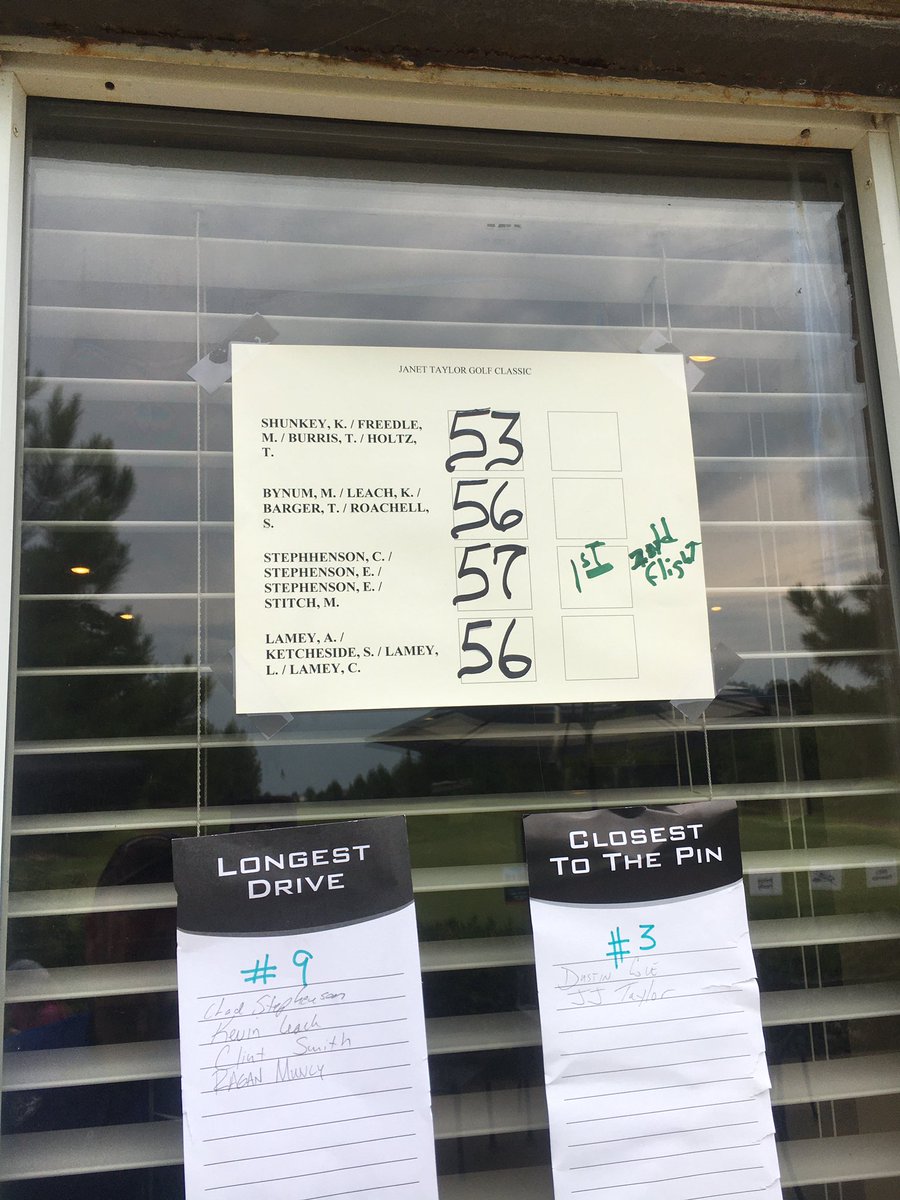 JANET TAYLOR GOLF CLASSIC
SHUNKEY, K. / FREEDLE,
M. / BURRIS, T. / HOLTZ,
T.
53
BYNUM, M. / LEACH, K. /
BARGER, T. / ROACHELL,
S.
56
STEPHHENSON, C. /
STEPHENSON, E. /
STEPHENSON, E. /
STITCH, M.
57
1ST
flight
LAMEY, A. /
KETCHESIDE, S. / LAMEY,
L. / LAMEY, C.
56
LONGEST
DRIVE
#9
Chad Stephenson
Kevin Leach
Clint Smith
RAGAN MUNCY
CLOSEST
TO THE PIN
#3
DUSTIN
JJ Taylor